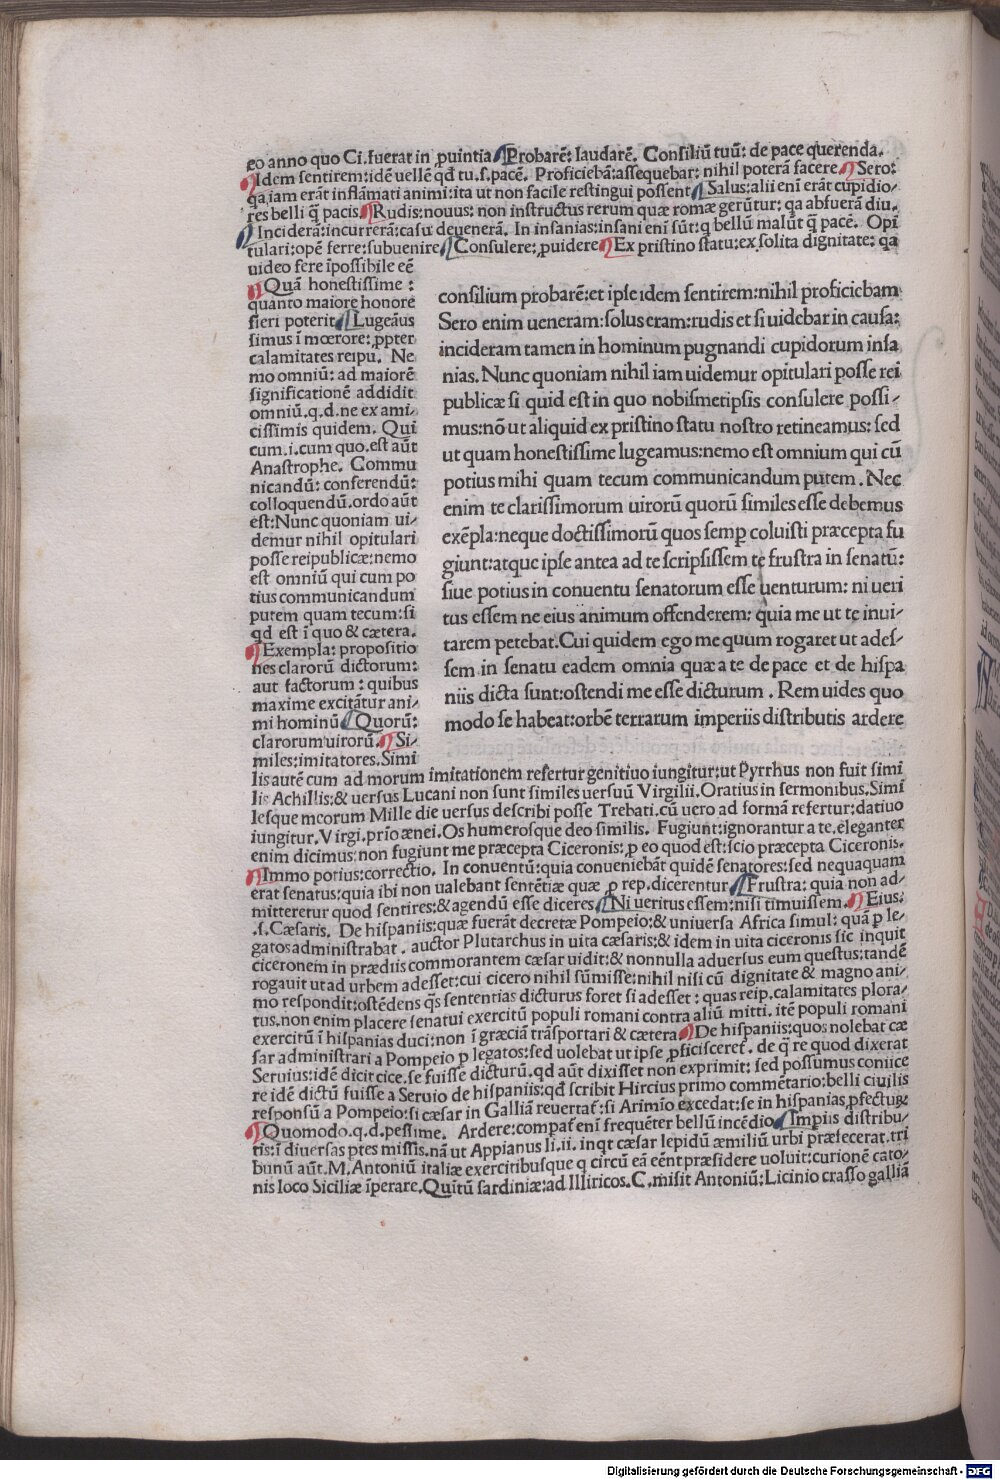 eo anno quo Ci. fuerat in ꝓuintia ¶Probarē: laudarē. Consiliū tuū: de pace querenda.
¶Idem sentirem: idē uellē qđ tu.s.pacē. Proficiebā: assequebar: nihil poterā facere ¶Sero:
qa iam erāt inflāmati animi: ita ut non facile restingui possent ¶Salus: alii eni erāt cupidio-
res belli q̄ pacis ¶Rudis: nouus: non instructus rerum quæ romæ gerūtur: qa abfuerā diu.
¶Inciderā: incurrerā: casu deuenerā. In insanias: insani eni sūt: q bellū malūt q̄ pacē. Opi
tulari: opē ferre: subuenire ¶Consulere: ꝓuidere ¶Ex pristino statu: ex solita dignitate: qa
uideo fere īpossibile eē
¶Quā honestissime:
quanto maiore honore
fieri poterit ¶Lugeāus
simus ī mœrore: ꝓpter
calamitates reipu. Ne
mo omniū: ad maiorē
significationē addidit
omniū.q.d.ne ex ami-
cissimis quidem. Qui
cum.i.cum quo.est aūt
Anastrophe. Commu
nicandū: conferendū:
colloquendū. ordo aūt
est: Nunc quoniam ui-
demur nihil opitulari
posse reipublicæ: nemo
est omniū qui cum po
tius communicandum
putem quam tecum: si
qđ est ī quo & cætera.
¶Exempla: propositio
nes clarorū dictorum:
aut factorum: quibus
maxime excitātur ani-
mi hominū ¶Quorū:
clarorum uirorū. ¶Si-
miles: imitatores. Simi
consilium probarē: et ipse idem sentirem: nihil proficiebam
Sero enim ueneram: solus eram: rudis et si uidebar in causa:
incideram tamen in hominum pugnandi cupidorum insa
nias. Nunc quoniam nihil iam uidemur opitulari posse rei
publicæ si quid est in quo nobismetipsis consulere possi-
mus: nō ut aliquid ex pristino statu nostro retineamus: sed
ut quam honestissime lugeamus: nemo est omnium qui cū
potius mihi quam tecum communicandum putem. Nec
enim te clarissimorum uirorū quorū similes esse debemus
exēpla: neque doctissimorū quos semꝑ coluisti præcepta fu
giunt: atque ipse antea ad te scripsissem te frustra in senatū:
siue potius in conuentu senatorum esse uenturum: ni ueri
tus essem ne eius animum offenderem: quia me ut te inui-
tarem petebat. Cui quidem ego me quum rogaret ut ades-
sem in senatu eadem omnia quæ a te de pace et de hispa
niis dicta sunt: ostendi me esse dicturum. Rem uides quo
modo se habeat: orbē terrarum imperiis distributis ardere
lis autē cum ad morum imitationem refertur genitiuo iungitur: ut Pyrrhus non fuit simi
lis Achillis: & uersus Lucani non sunt similes uersuū Virgilii. Oratius in sermonibus. Simi
lesque meorum Mille die uersus describi posse Trebati. cū uero ad formā refertur: datiuo
iungitur. Virgi. prīo ænei. Os humerosque deo similis. Fugiunt: ignorantur a te. eleganter
enim dicimus: non fugiunt me præcepta Ciceronis: ꝑ eo quod est: scio præcepta Ciceronis.
¶Immo potius: correctio. In conuentū: quia conueniebāt quidē senatores: sed nequaquam
erat senatus: quia ibi non ualebant sentētiæ quæ ꝑ rep. dicerentur ¶Frustra: quia non ad-
mitteretur quod sentires: & agendū esse diceres ¶Ni ueritus essem: nisi timuissem. ¶Eius:
.s. Cæsaris. De hispaniis: quæ fuerāt decretæ Pompeio: & uniuersa Africa simul: quā ꝑ le-
gatos administrabat. auctor Plutarchus in uita cæsaris: & idem in uita ciceronis sic inquit
ciceronem in prædiis commorantem cæsar uidit: & nonnulla aduersus eum questus: tandē
rogauit ut ad urbem adesset: cui cicero nihil sūmisse: nihil nisi cū dignitate & magno ani-
mo respondit: ostēdens q̄s sententias dicturus foret si adesset: quas reip. calamitates plora-
tus. non enim placere senatui exercitū populi romani contra aliū mitti. itē populi romani
exercitū ī hispanias duci: non ī græciā trāsportari & cætera ¶De hispaniis: quos nolebat cæ
sar administrari a Pompeio ꝑ legatos: sed uolebat ut ipse ꝓficisceret̄. de q̄ re quod dixerat
Seruius: idē dicit cice. se fuisse dicturū. qđ aūt dixisset non exprimit: sed possumus coniice
re idē dictū fuisse a Seruio de hispaniis: qđ scribit Hircius primo commētario: belli ciuilis
responsū a Pompeio: si cæsar in Galliā reuertat̄: si Arimīo excedat: se in hispanias ꝓfecturū
¶Quomodo.q.d.pessime. Ardere: compat̄ eni frequēter bellū incēdio ¶Impiis distribu-
tis: ī diuersas ꝑtes missis. nā ut Appianus li.ii. inqt cæsar lepidū æmiliū urbi præfecerat. tri
bunū aūt. M. Antoniū italiæ exercitibusque q circū eā eēnt præsidere uoluit: curionē cato-
nis loco Siciliæ īperare. Quītū sardiniæ: ad Illiricos. C. misit Antoniū: Licinio crasso galliā
Digitalisierung gefördert durch die Deutsche Forschungsgemeinschaft - DFG